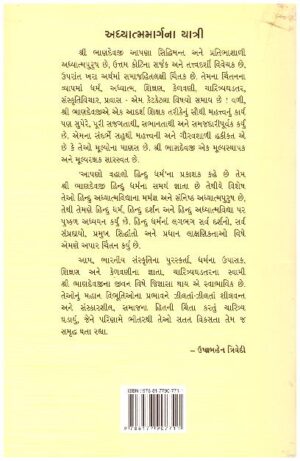 અધ્યાત્મમાર્ગના યાત્રી
શ્રી ભાણદેવજી આપણા સિદ્ધિમન્ત અને પ્રતિભાશાળી
અધ્યાત્મપુરુષ છે, ઉત્તમ કોટિના સર્જક અને તત્ત્વદર્શી વિવેચક છે.
ઉપરાંત ખરા અર્થમાં સમાજહિતલક્ષી ચિંતક છે. તેમના ચિંતનના
વ્યાપમાં ધર્મ અધ્યાત્મ, શિક્ષણ, કેળવણી, ચારિત્ર્યઘડતર,
સંસ્કૃતિવિચાર, પ્રવાસ - એમ કેટકેટલા વિષયો સમાય છે ! વળી,
શ્રી ભાણદેવજીએ એક આદર્શ શિક્ષક તરીકેનું સૌથી મહત્ત્વનું કાર્ય
પણ સુપેરે, પૂરી સજાગતાથી, સભાનતાથી અને સમજદારીપૂર્વક કર્યું
છે. એમના સંદર્ભે સહુથી મહત્ત્વની અને ગૌરવશાળી હકીકત એ
છે કે તેઓ મૂલ્યોના પાણતલ છે. શ્રી ભાણદેવજી એક મૂલ્યસ્થાપક
અને મૂલ્યરક્ષક સારસ્વત છે.
'આપણો વહાલો હિન્દુ ધર્મ'ના પ્રકાશક કહે છે તેમ
શ્રી ભાણદેવજી હિન્દુ ધર્મના સમર્થ જ્ઞાતા છે તેથીયે વિશેષ
તેઓ હિન્દુ અધ્યાત્મવિદ્યાના મર્મજ્ઞ અને સંનિષ્ઠ અધ્યાત્મપુરુષ છે,
તેથી તેમણે હિન્દુ ધર્મ, હિન્દુ દર્શન અને હિન્દુ અધ્યાત્મવિદ્યા પર
પુષ્કળ અધ્યયન કર્યું છે. હિન્દુ ધર્મનાં લગભગ સર્વ દર્શનો, સર્વ
સંપ્રદાયો, પ્રમુખ સિદ્ધાંતો અને પ્રધાન લાક્ષણિકતાઓ વિષે
એમણે અપાર ચિંતન કર્યું છે.
આમ, ભારતીય સંસ્કૃતિના પુરસ્કર્તા, ધર્મના ઉપાસક,
શિક્ષણ અને કેળવણીના જ્ઞાતા, ચારિત્ર્યઘડતરના સ્વામી
શ્રી ભાણદેવજીના જીવન વિષે જિજ્ઞાસા થાય એ સ્વાભાવિક છે.
તેઓનું મહાન વિભૂતિઓના પ્રભાવને ઝીલતાં-ઝીલતાં શીલવન્ત
અને સંસ્કારશીલ, સમાજમાં હિતની ચિંતા કરતું ચારિત્ર્ય
ઘડાયું, જેને પરિણામે ભીતરથી તેઓ સતત વિકસતા તેમ જ
સમૃદ્ધ થતા રહ્યા.
– ઉષાબહેન ત્રિવેદી
ISBN : 978-81-7790-771-